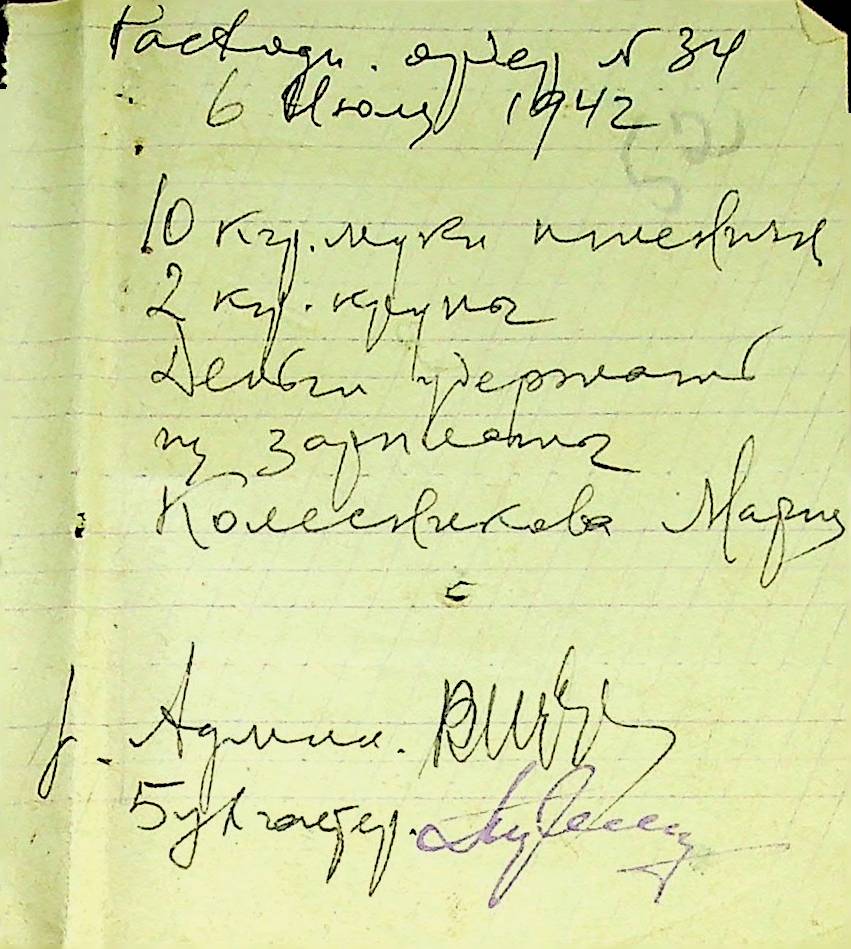 Расходн. ордер N 34
6 Июля 1942
52
10 кгр. муки пшеничн
2 кгр. крупы
Деньги удержать
из зарплаты
Колесникова Мария
Г. Админ.
Бухгалтер.